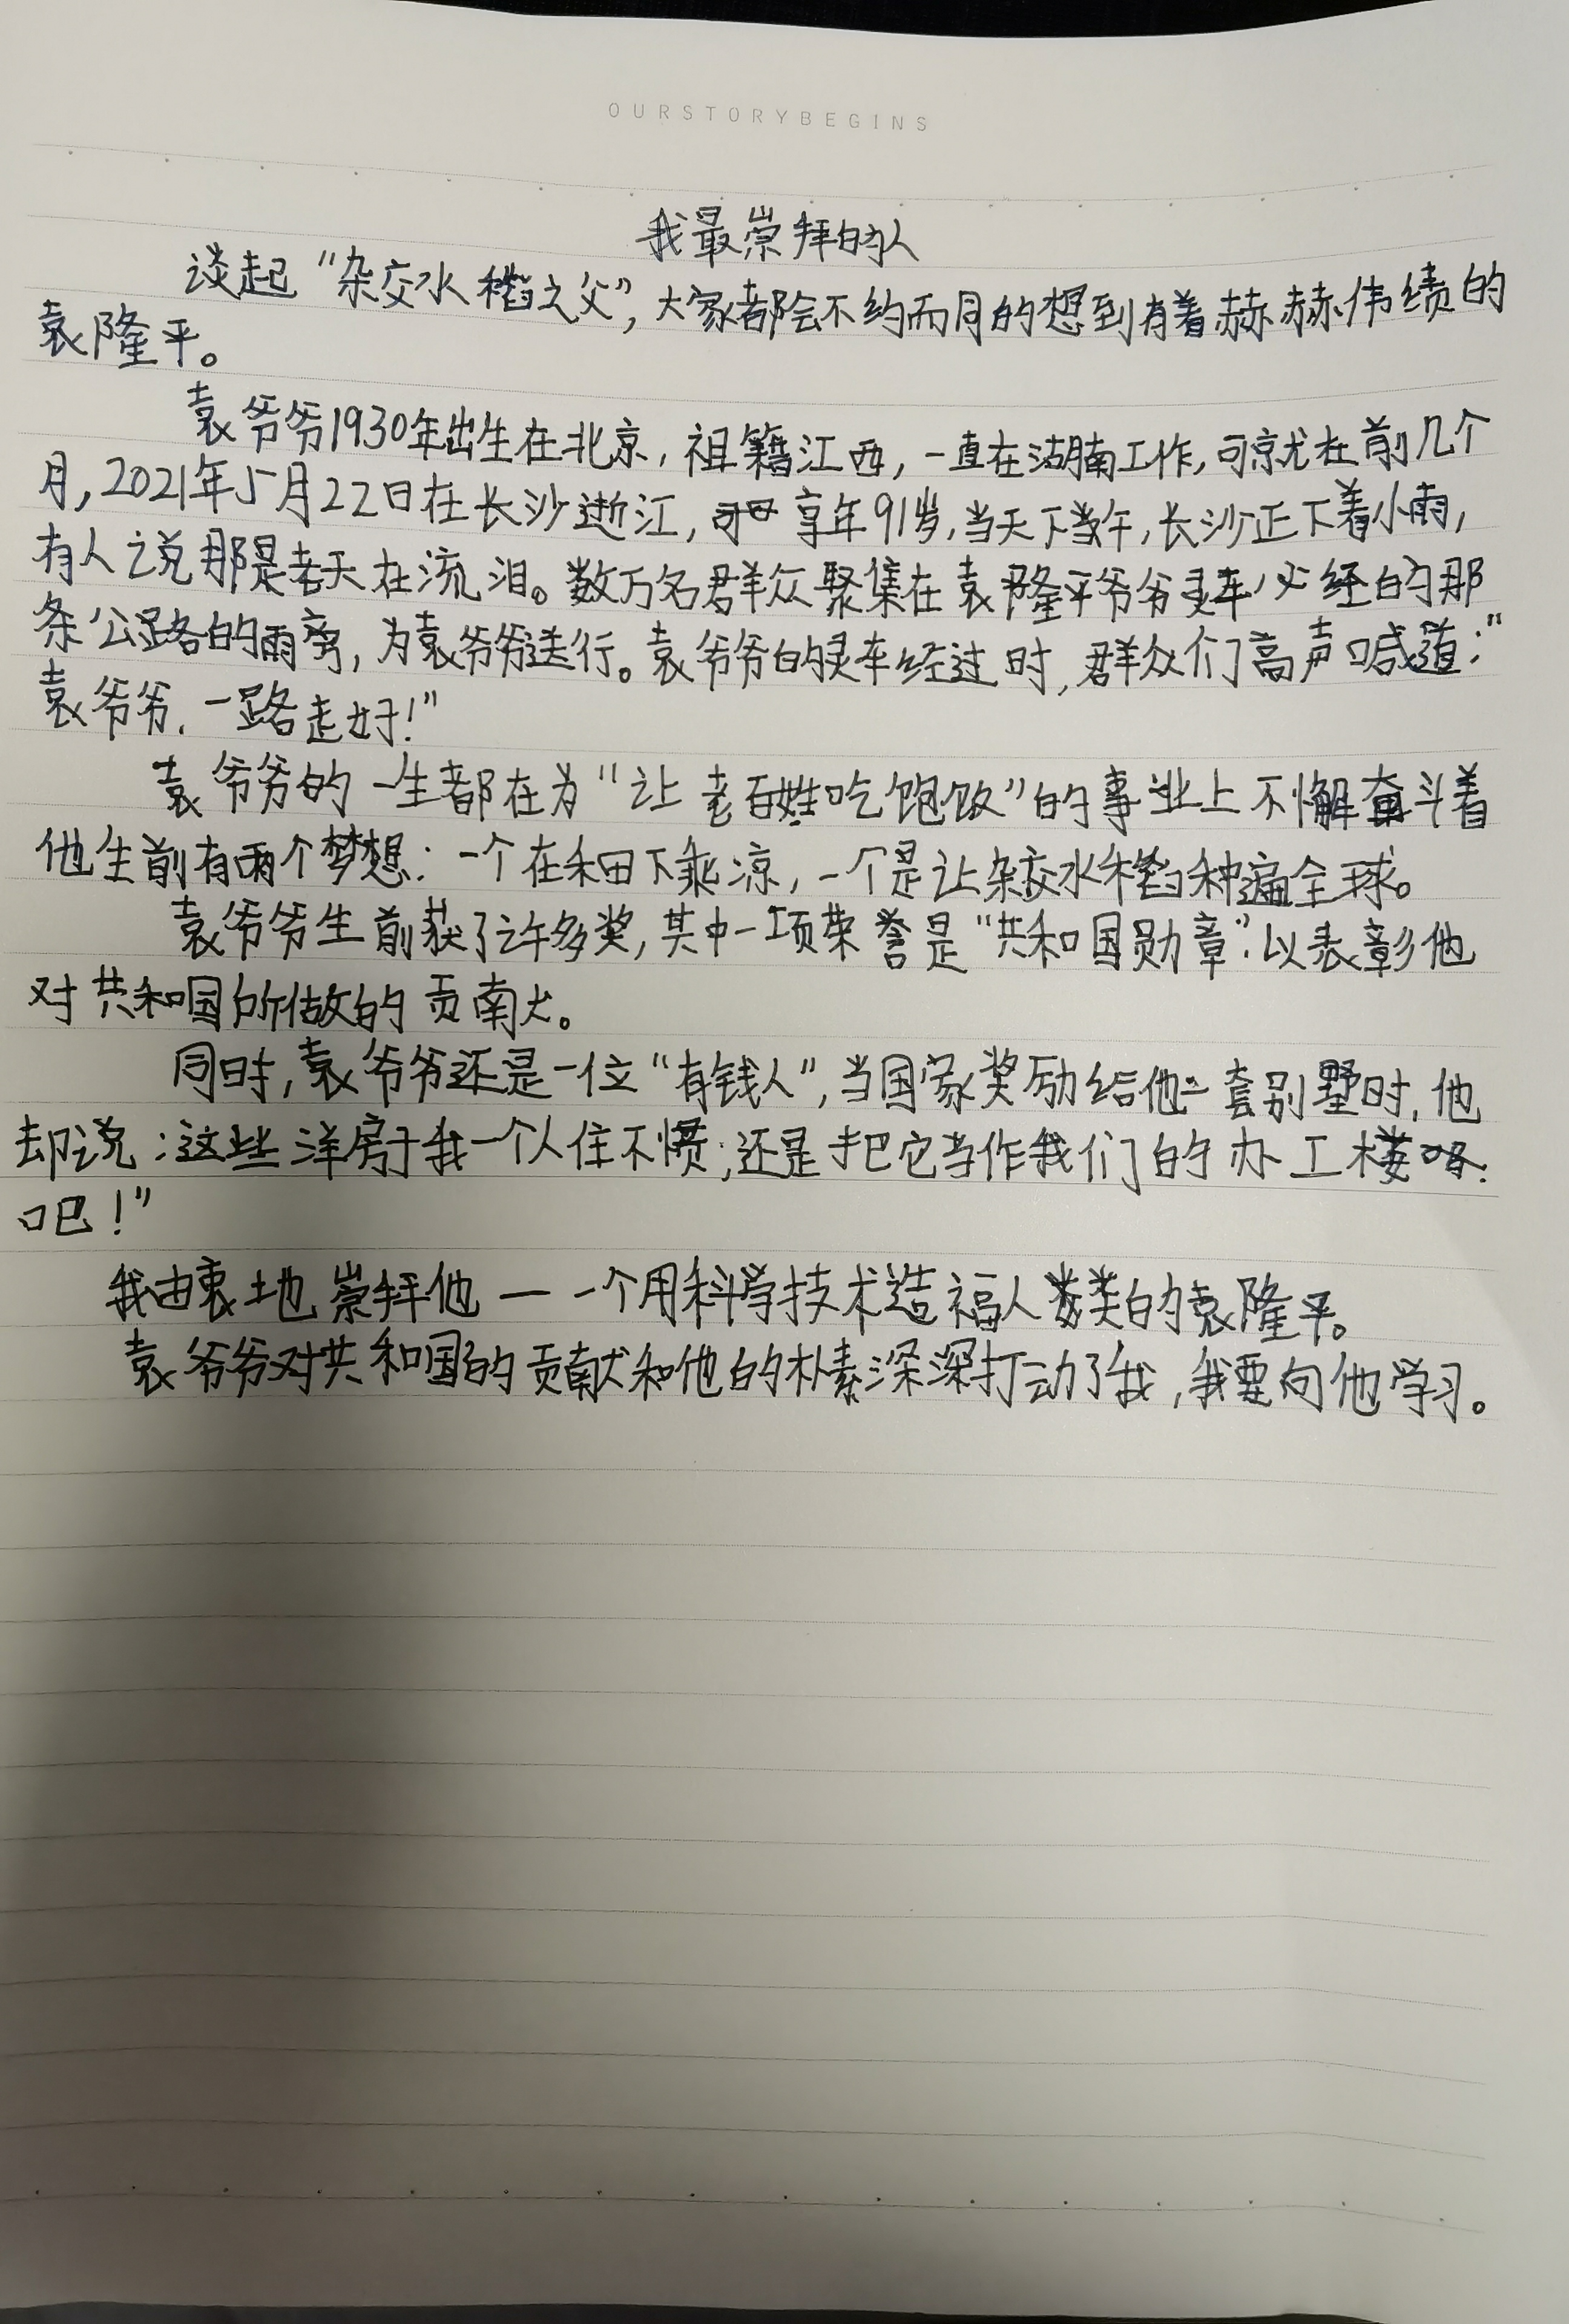 OURSTORYBEGINS
我最崇拜的人
谈起“杂交水稻之父”,大家都会不约而同的想到有着赫赫伟绩的
袁隆平。
袁爷爷1930年出生在北京,祖籍江西,一直在湖南工作,可就在前几个
月,2021年5月22日在长沙逝江,享年91岁,当天下午,长沙正下着小雨,
有人说那是老天在流泪。数万名群众聚集在袁隆平爷爷灵车必经的那
条公路的两旁,为袁爷爷送行。袁爷爷的灵车经过时,群众们高声喊道:“
袁爷爷,一路走好!”
袁爷爷的一生都在为“让老百姓吃饱饭”的事业上不懈奋斗着
他生前有两个梦想:一个在禾田下乘凉,一个是让杂交水稻种遍全球。
袁爷爷生前获了许多奖,其中一项荣誉是“共和国勋章”.以表彰他
对共和国所做的贡献。
同时,袁爷爷还是一位“有钱人”,当国家奖励给他一套别墅时,他
却说:这些洋房于我一个人住不惯,还是把它当作我们的办工楼
吧!”
我由衷地崇拜他一一个用科学技术造福人类的袁隆平。
袁爷爷对共和国的贡献和他的朴素深深打动了我,我要向他学习。